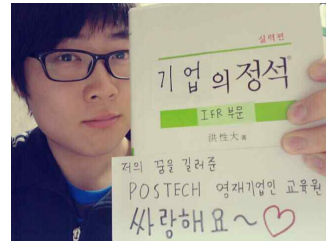 실력편
기업의정석
IFR 부문
洪性大 著
저의 꿈을 길러준
POSTECH 영재기업인 교육원
싸랑해요~♡